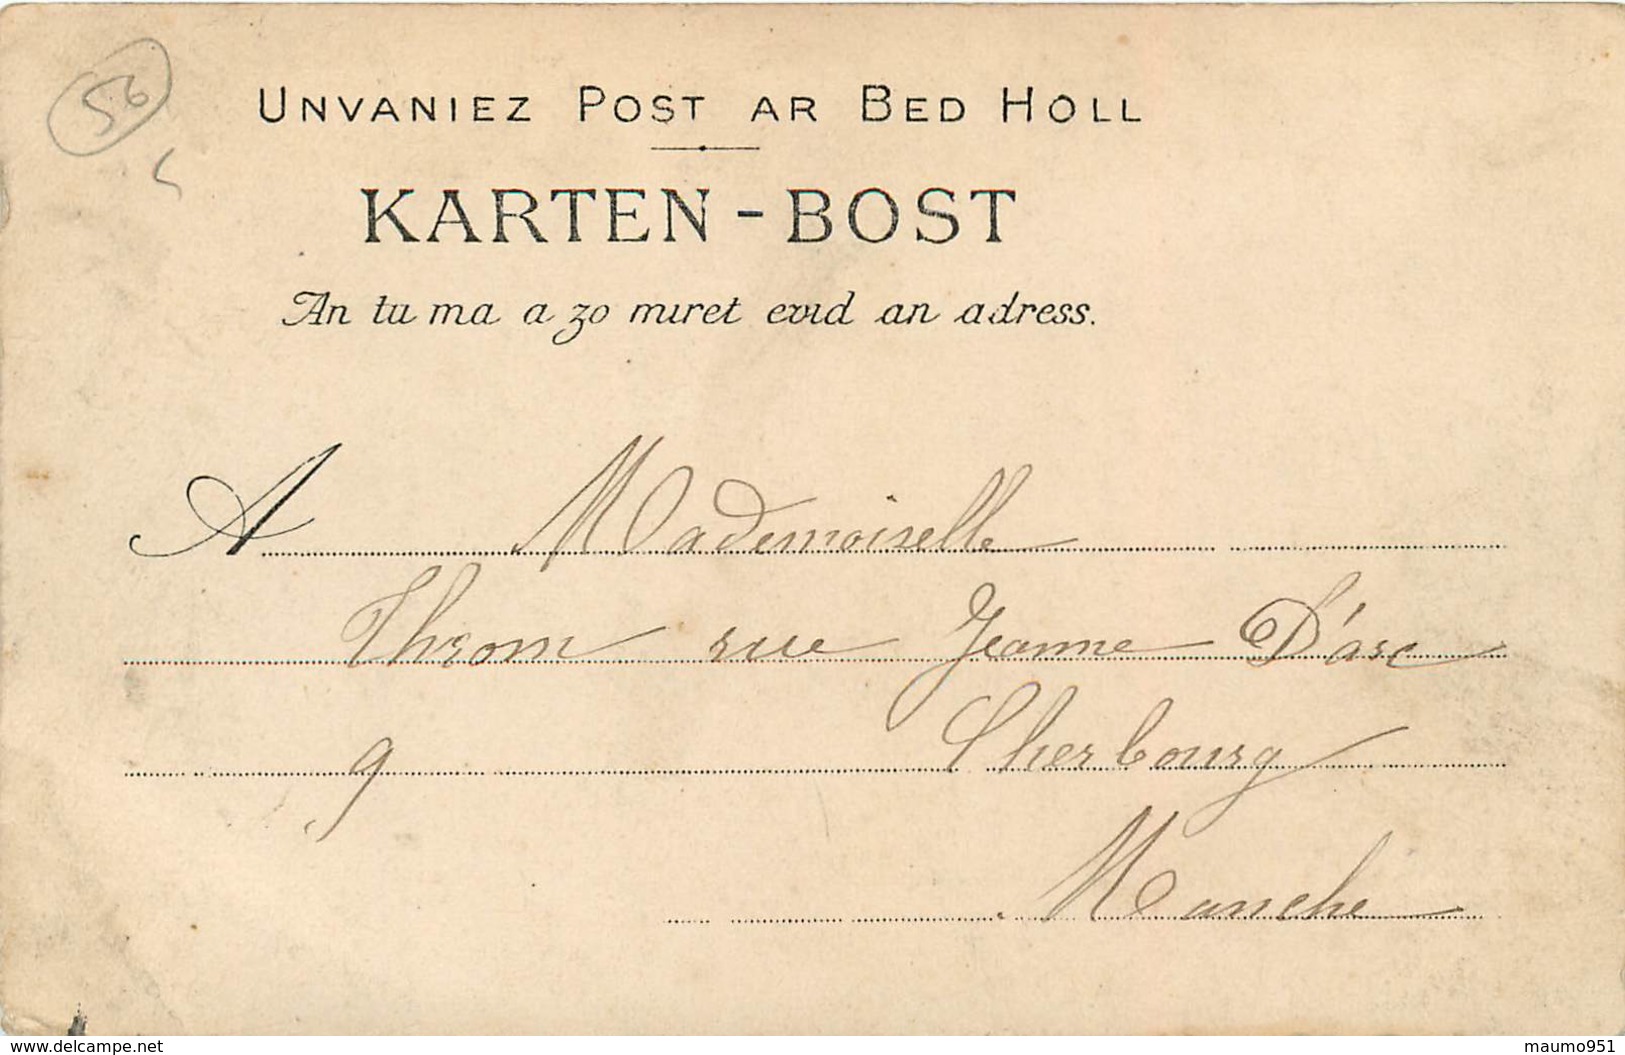 56
UNVANIEZ POST AR BED HOLL
KARTEN-BOST
An tu ma a zo miret evid an adress.
A Mademoiselle
Throm rue Jeanne D'arc
9 Cherbourg
Manche
www.delcampe.net
maumo951